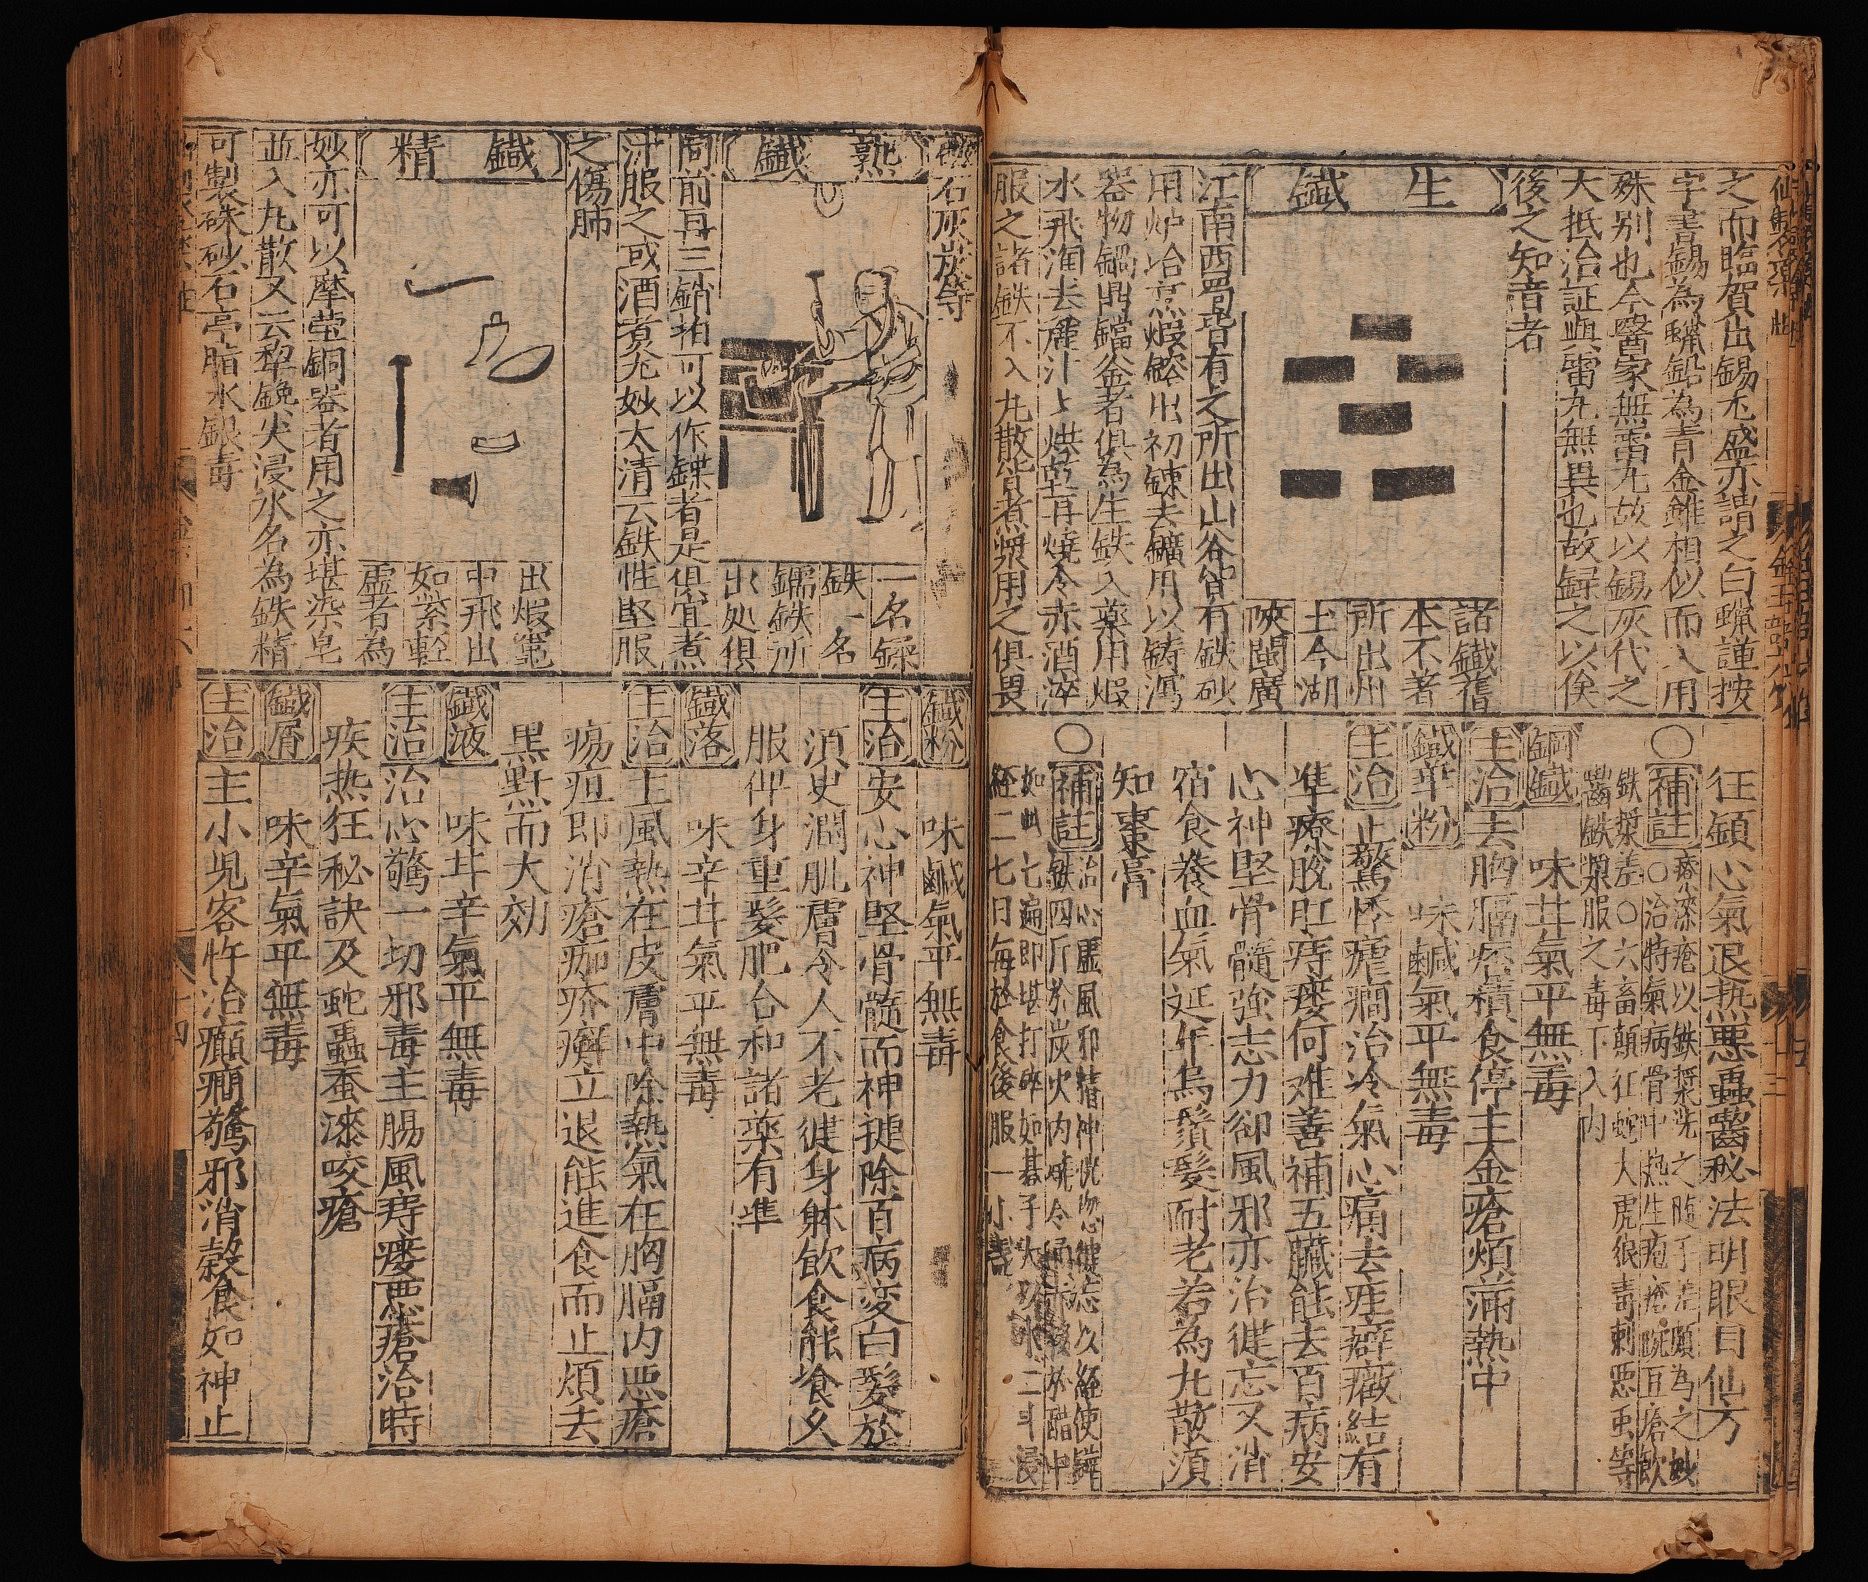 之而臨賀出錫尤盛亦謂之白蠟謹按
字書錫為鑞鉛為青金雖相似而入用
殊别也今醫家無電丸故以錫灰代之
大抵治証與雷丸無異也故録之以俟
後之知音者
生鐵
諸鐵舊
本不著
所出州
土今湖
陜閩廣
江南西蜀皆有之所出山谷皆有鉄砂
用炉冶烹煅鎔出初錬去鑛用以鋳瀉
器物鍋鼎鐺釜者俱為生鉄入藥用煅
水飛淘去麄汁上烘乾再燒令赤酒淬
服之諸鉄不入丸散皆煮漿用之俱畏
狂顛心氣退热悪蟲齧秘法明眼目仙方
○補註
鉄漿差○六畜顛狂蛇犬虎狼毒刺悪虫等
齧鉄漿服之毒下入内
鋼鐵 味甘氣平無毒
主治 去胸膈痞積食停主金瘡煩滿熱中
鐵華粉 味鹹氣平無毒
主治 止驚悸瘧癇治冷氣心痛去痃癖癥結有
準療脫肛痔瘻何难善補五臟能去百病安
心神堅骨髓強志力卻風邪亦治健忘又消
宿食養血氣延年烏鬚髮耐老若為丸散須
知棗膏
○補註 治心虛風邪精神恍惚健忘以經使鏵
鉄四斤於炭火内燒令通赤投於醋中
如此七遍即堪打碎如碁子大取水二斗浸
経二七日每於食後服一小盞
石灰炭等
熟鐵
一名鍒
鉄一名
鑐鉄所
出処俱
同前再三銷拍可以作鍱者是俱宜煮
汁服之或酒煮尤妙太清云鉄性堅服
之傷肺
鐵精
出煅竈
中飛出
如紫輕
虛者為
妙亦可以摩瑩銅器者用之亦堪染皂
並入丸散又云犂鑱尖浸水名為鉄精
可製硃砂石亭脂水銀毒
鐵粉 味鹹氣平無毒
主治 安心神堅骨髓而神揵除百病变白髮於
須臾潤肌膚令人不老徤身躰飲食能飡久
服俾身重髮肥合和諸藥有準
鐵落 味辛甘氣平無毒
主治 主風熱在皮膚中除熱氣在胸膈内悪瘡
瘍疽即消瘡痂疥癬立退能進食而止煩去
黒䵟而大効
鐵液 味甘辛氣平無毒
主治 治心驚一切邪毒主腸風痔瘻悪瘡治時
疾热狂秘訣及蛇蟲蚕漆咬瘡
鐵屑 味辛氣平無毒
主治 主小児客忤治癲癇驚邪消穀食如神止